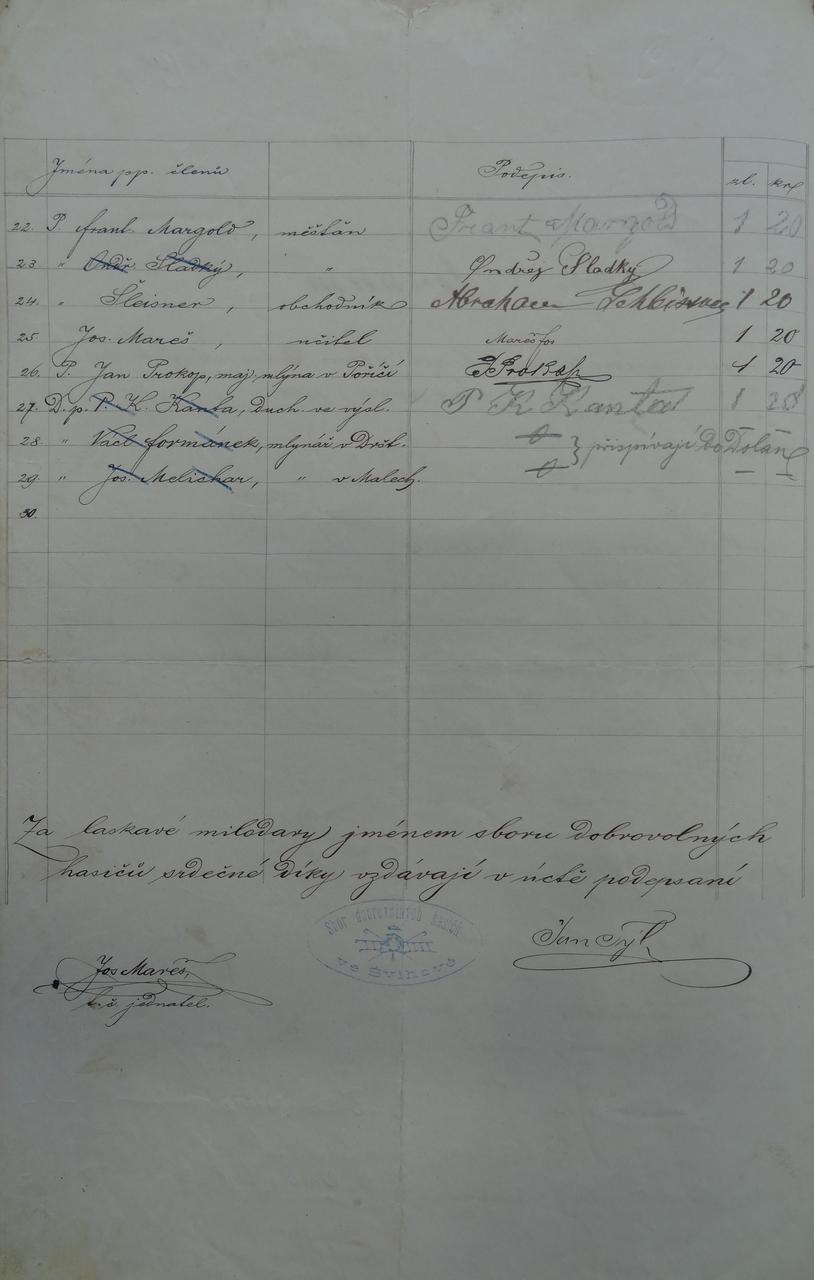 Jména pp. členů Podepis. zl. kr.
22. P. Frant. Margold, měšťan Frant Margold 1 20
23 " Ondř. Sladký, " Ondřej Sladky 1 20
24. " Šleisner, obchodník Abraham 1 20
25. Jos. Mareš, učitel Mareš Jos 1 20
26. P. Jan Prokop, maj. mlýna v Poříčí JProkop 1 20
27. D. p. P. K. Kanta, duch. ve výsl. P K Kanta 1 20
28 " Václ. Formánek, mlynář v Dršt. } přispívají do Dolan
29. " Jos. Melichar, " v Malech.
30.
Za laskavé milodary jménem sboru dobrovolných
hasičů srdečné díky vzdávají v úctě podepsaní
Sbor dobrovolných hasičů
ve Švihově
Jan Týl
Jos Mareš,
t. č. jednatel.